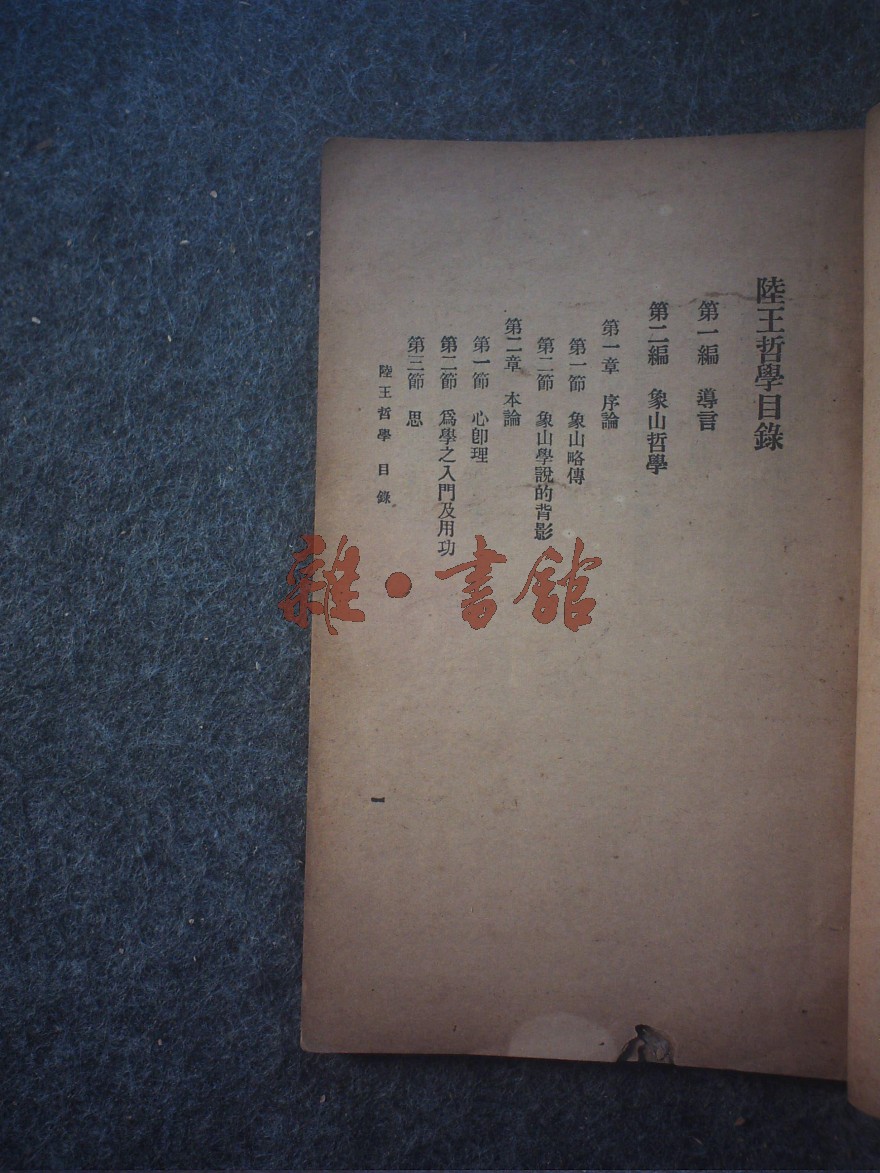 陸王哲學目錄
第一編　導言
第二編　象山哲學
第一章　序論
第一節　象山略傳
第二節　象山學說的背影
第二章　本論
第一節　心卽理
第二節　爲學之入門及用功
第三節　思
陸王哲學　目錄
一
雜·書館